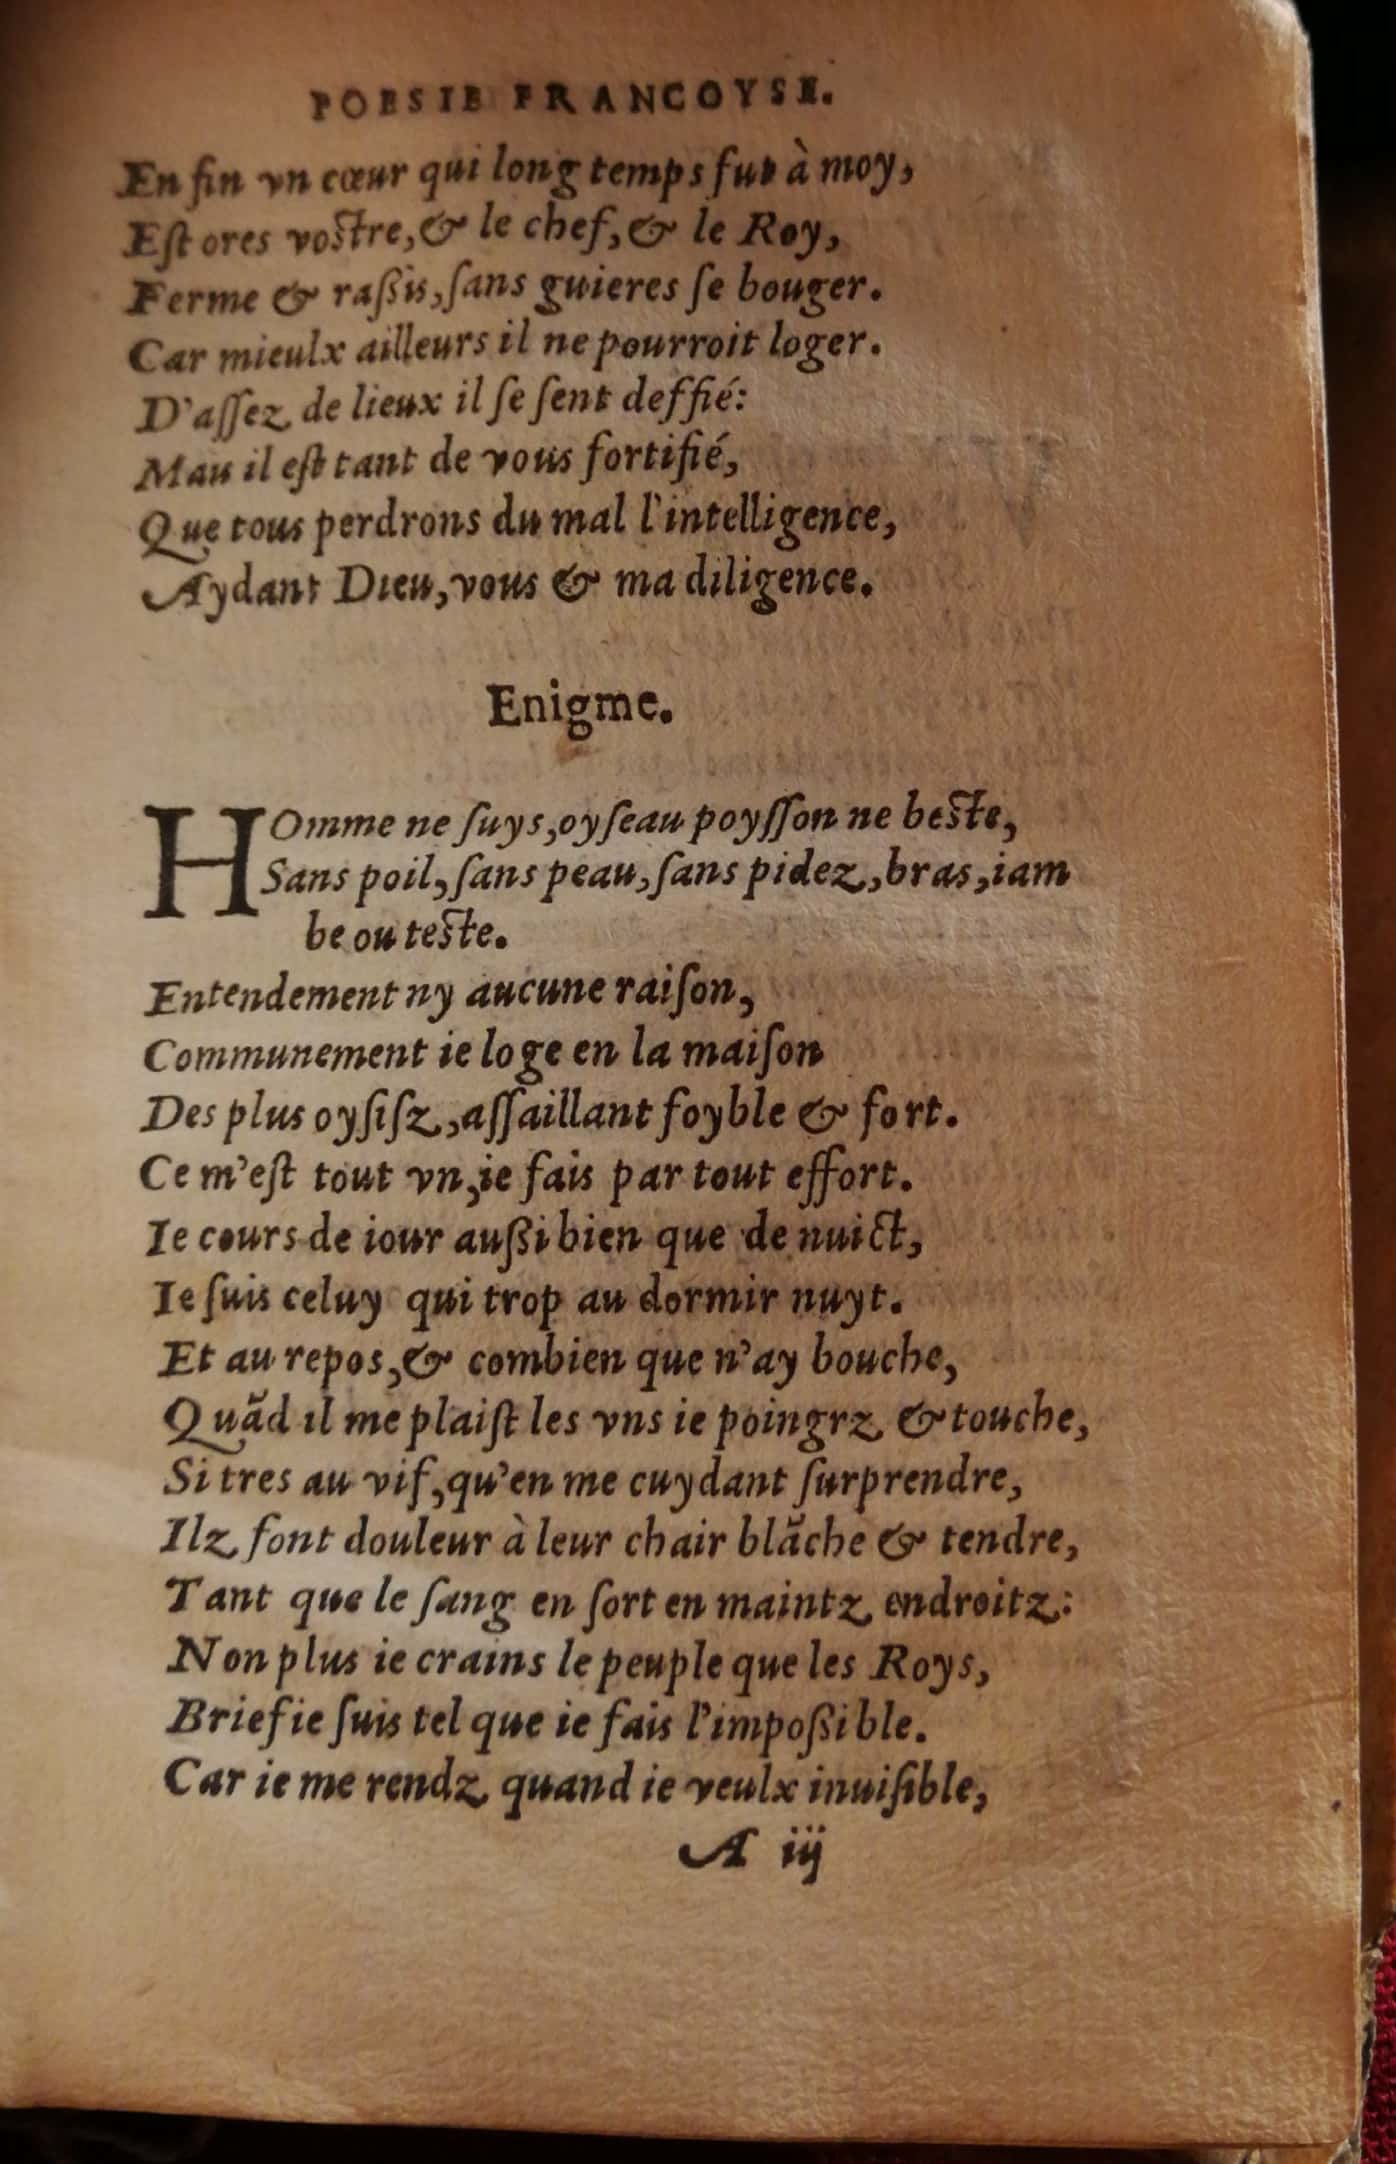 POESIE FRANCOYSE.
En fin vn cœur qui long temps fut à moy,
Eſt ores voſtre, & le chef, & le Roy,
Ferme & raßis, ſans guieres ſe bouger.
Car mieulx ailleurs il ne pourroit loger.
D'aſſez de lieux il ſe ſent deffié:
Mais il eſt tant de vous fortifié,
Que tous perdrons du mal l'intelligence,
Aydant Dieu, vous & ma diligence.
Enigme.
HOmme ne ſuys, oyſeau poyſſon ne beſte,
Sans poil, ſans peau, ſans pidez, bras, iam
be ou teſte.
Entendement ny aucune raiſon,
Communement ie loge en la maiſon
Des plus oyſiſz, aſſaillant foyble & fort.
Ce m'eſt tout vn, ie fais par tout effort.
Ie cours de iour außi bien que de nuict,
Ie ſuis celuy qui trop au dormir nuyt.
Et au repos, & combien que n'ay bouche,
Quãd il me plaiſt les vns ie poingrz & touche,
Si tres au vif, qu'en me cuydant ſurprendre,
Ilz font douleur à leur chair blãche & tendre,
Tant que le ſang en ſort en maintz endroitz:
Non plus ie crains le peuple que les Roys,
Brief ie ſuis tel que ie fais l'impoßible.
Car ie me rendz quand ie veulx inuiſible,
A iij